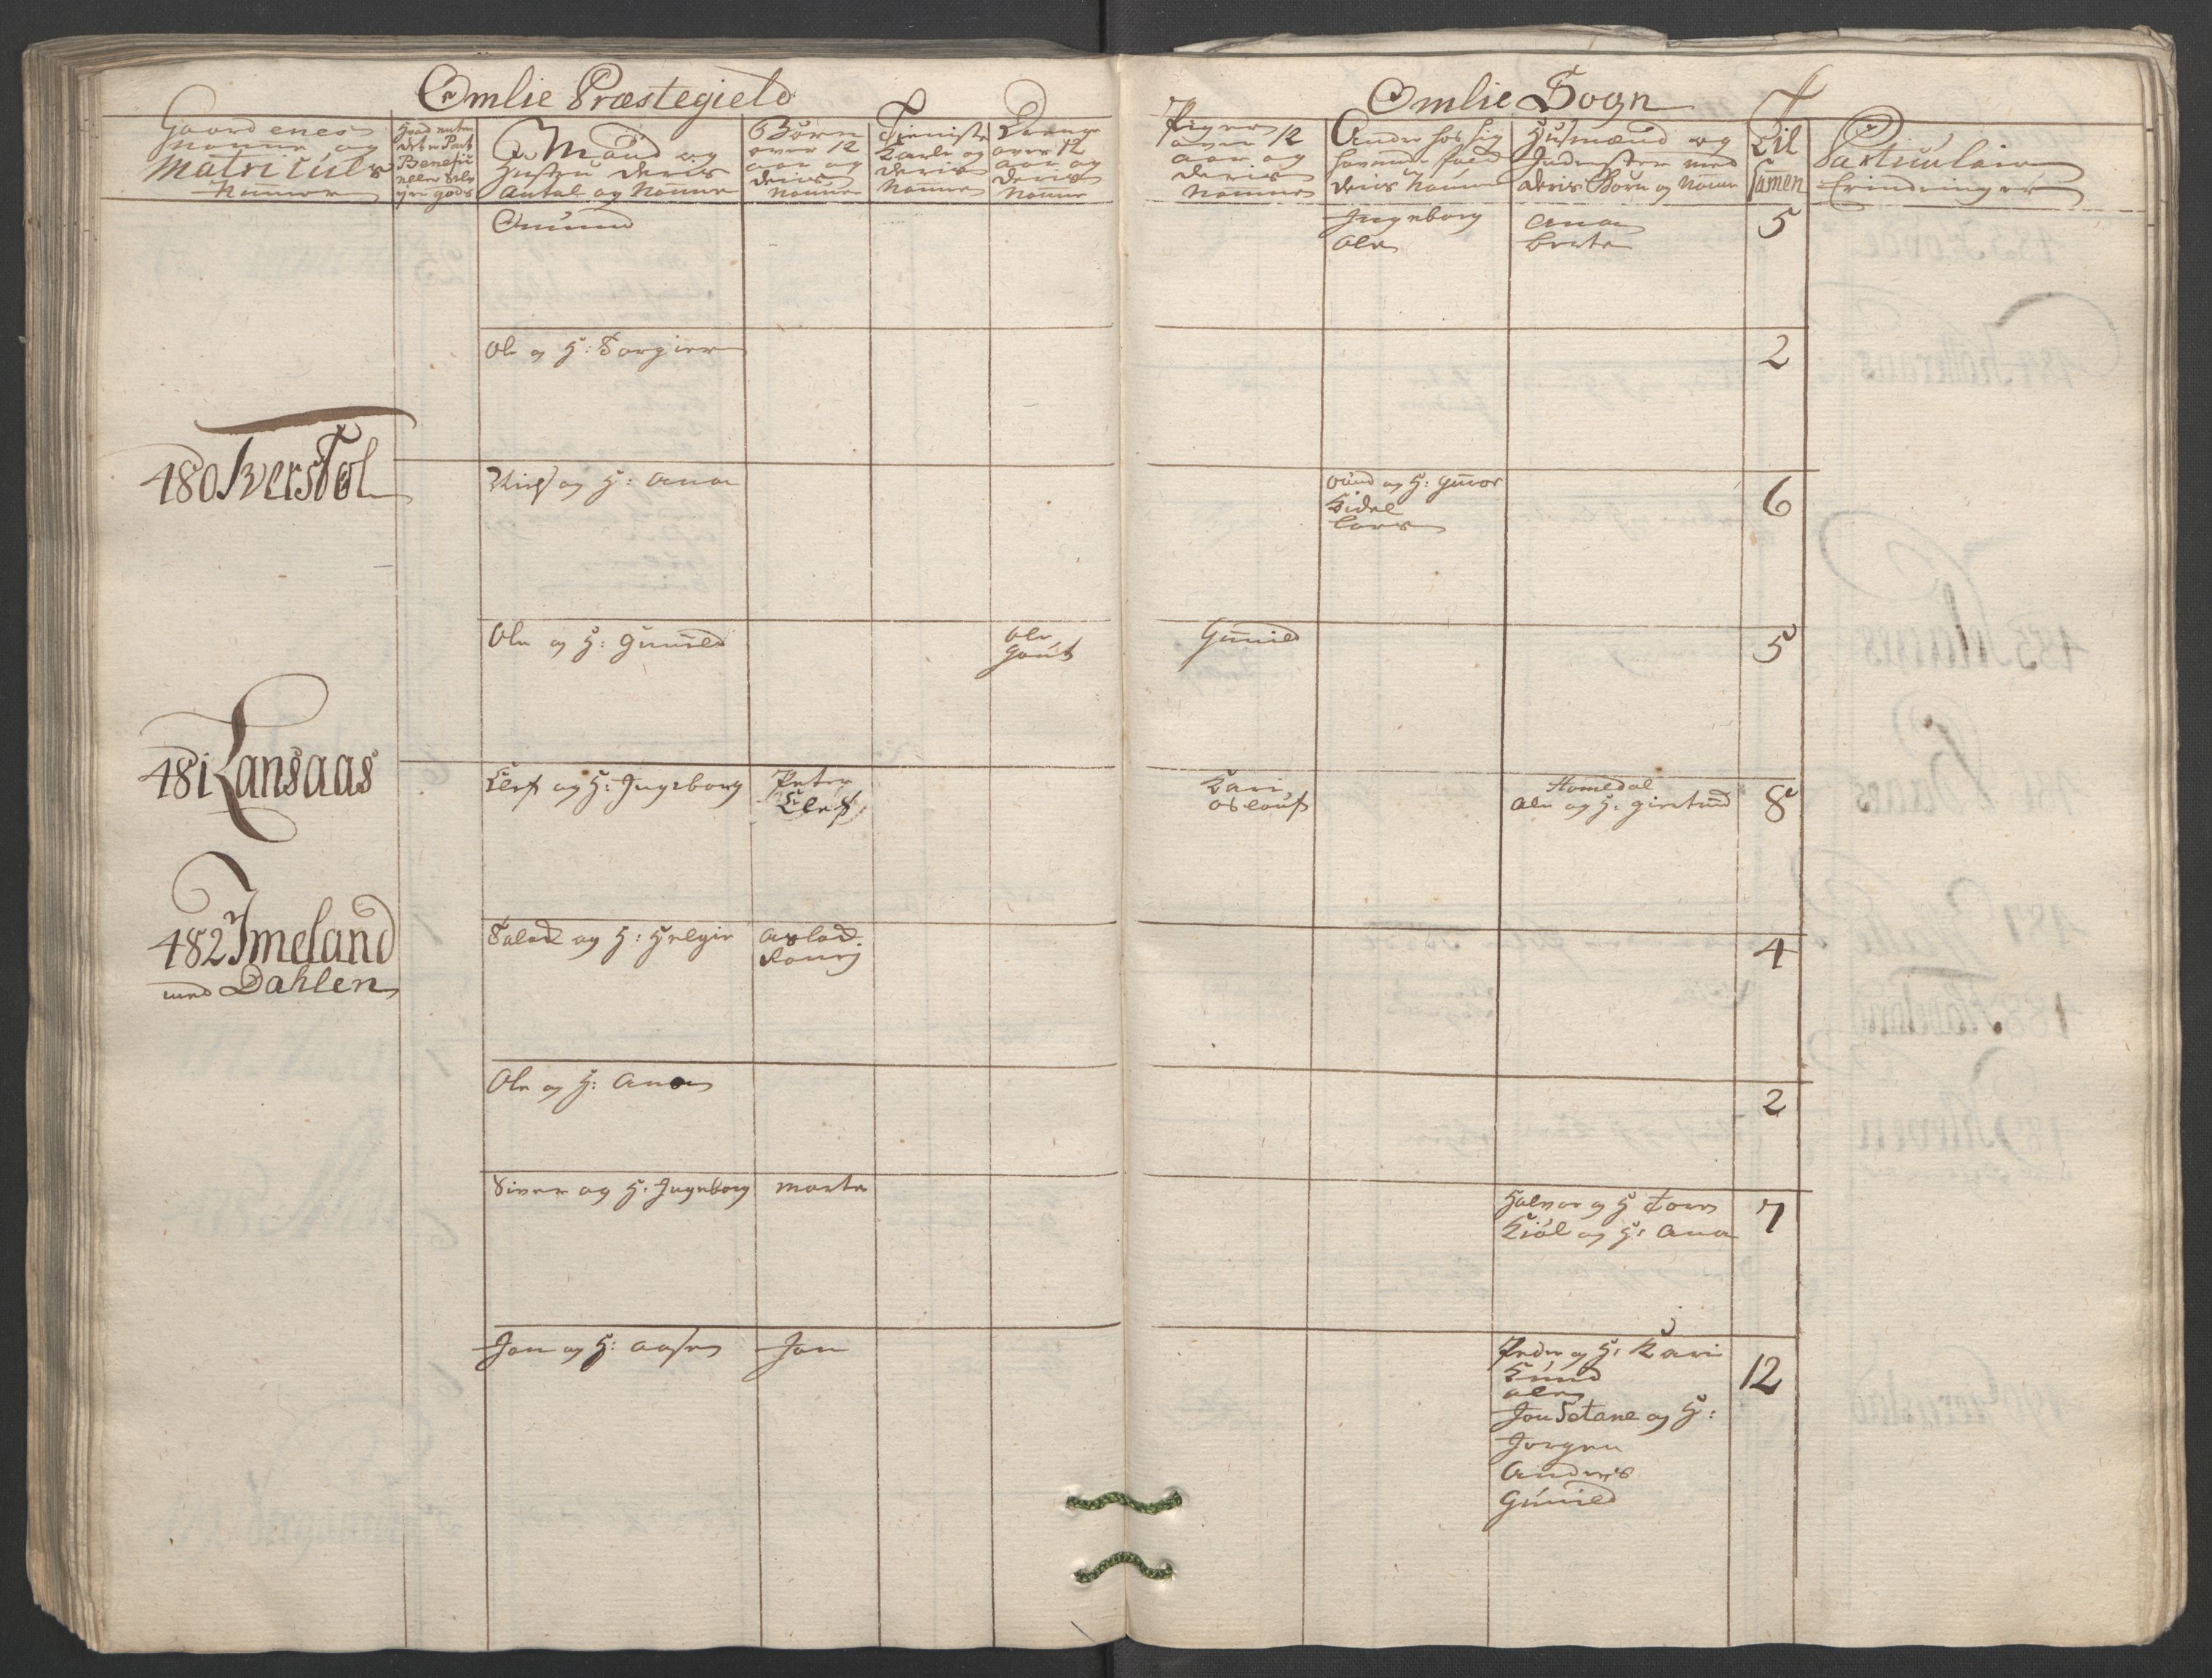 Omlie Præstegield
Omlie Sogn
Gaardenes
Nafne og
Matriculs
Numer
Mænd og
Hustru deris
Antal og Nafne
Børn
over 12
aar og
deris
Nafne
Tieniste
Karle og
deris
Nafne
Drenge
over 12
aar og
deris
Nafne
Piger
over 12
aar og
deris
Nafne
Andre hos sig
havende folk
deris Nafne
Husmænd og
Inderster med
deris Børn og Nafne
Til
samen
Particulaire
Erindringer
Omund
Ingeborg
Ole
Ana
Berte
5
Ole og H: Torgier
2
480 Iverstøl
og H: Ana
Ound og H: Gunor
Kidel
Lars
6
Ole og H: Gunild
Ole
Gout
Gunild
5
481 Kansaas
Elef og H: Ingeborg
Peter
Elef
Kari
Oslouf
Homedal
Ole og H: Giertrud
8
482 Imeland
med Dahlen
Salve og H: Helgie
Aslad
Ronnog
4
Ole og H: Anna
2
Siver og H: Ingeborg
Marte
Halvor og H Tore
Kiøl og H: Ana
7
Jon og H: Aase
Jon
Peder og H: Kari
Knud
Ole
Jon Setane og H:
Jorgen
Anders
Gunild
12